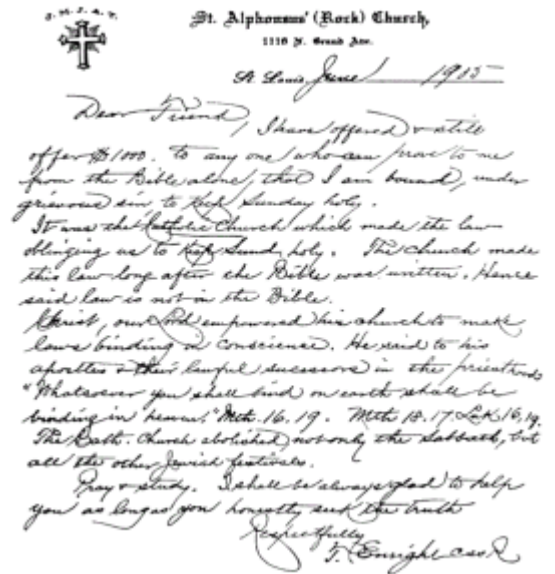 J. M. J. A. T.
St. Alphonsus' (Rock) Church,
1118 N. Grand Ave.
St. Louis, June 1905
Dear Friend,
I have offered & still
offer $1000. to any one who can prove to me
from the Bible alone, that I am bound, under
grievous sin to Keep Sunday holy.
It was the Catholic Church which made the law
obliging us to Keep Sunday holy. The church made
this law long after the Bible was written. Hence
said law is not in the Bible.
Christ, our Lord empowered his church to make
laws binding in conscience. He said to his
apostles & their lawful successors in the priesthood
"Whatsoever you shall bind on earth shall be
binding in heaven." Mth. 16. 19. Mth 18. 17 Luk 16, 19.
The Cath. Church abolished not only the Sabbath, but
all the other Jewish festivals.
Pray & study. I shall be always glad to help
you as long as you honestly seek the truth
Respectfully
T. Enright CSSR